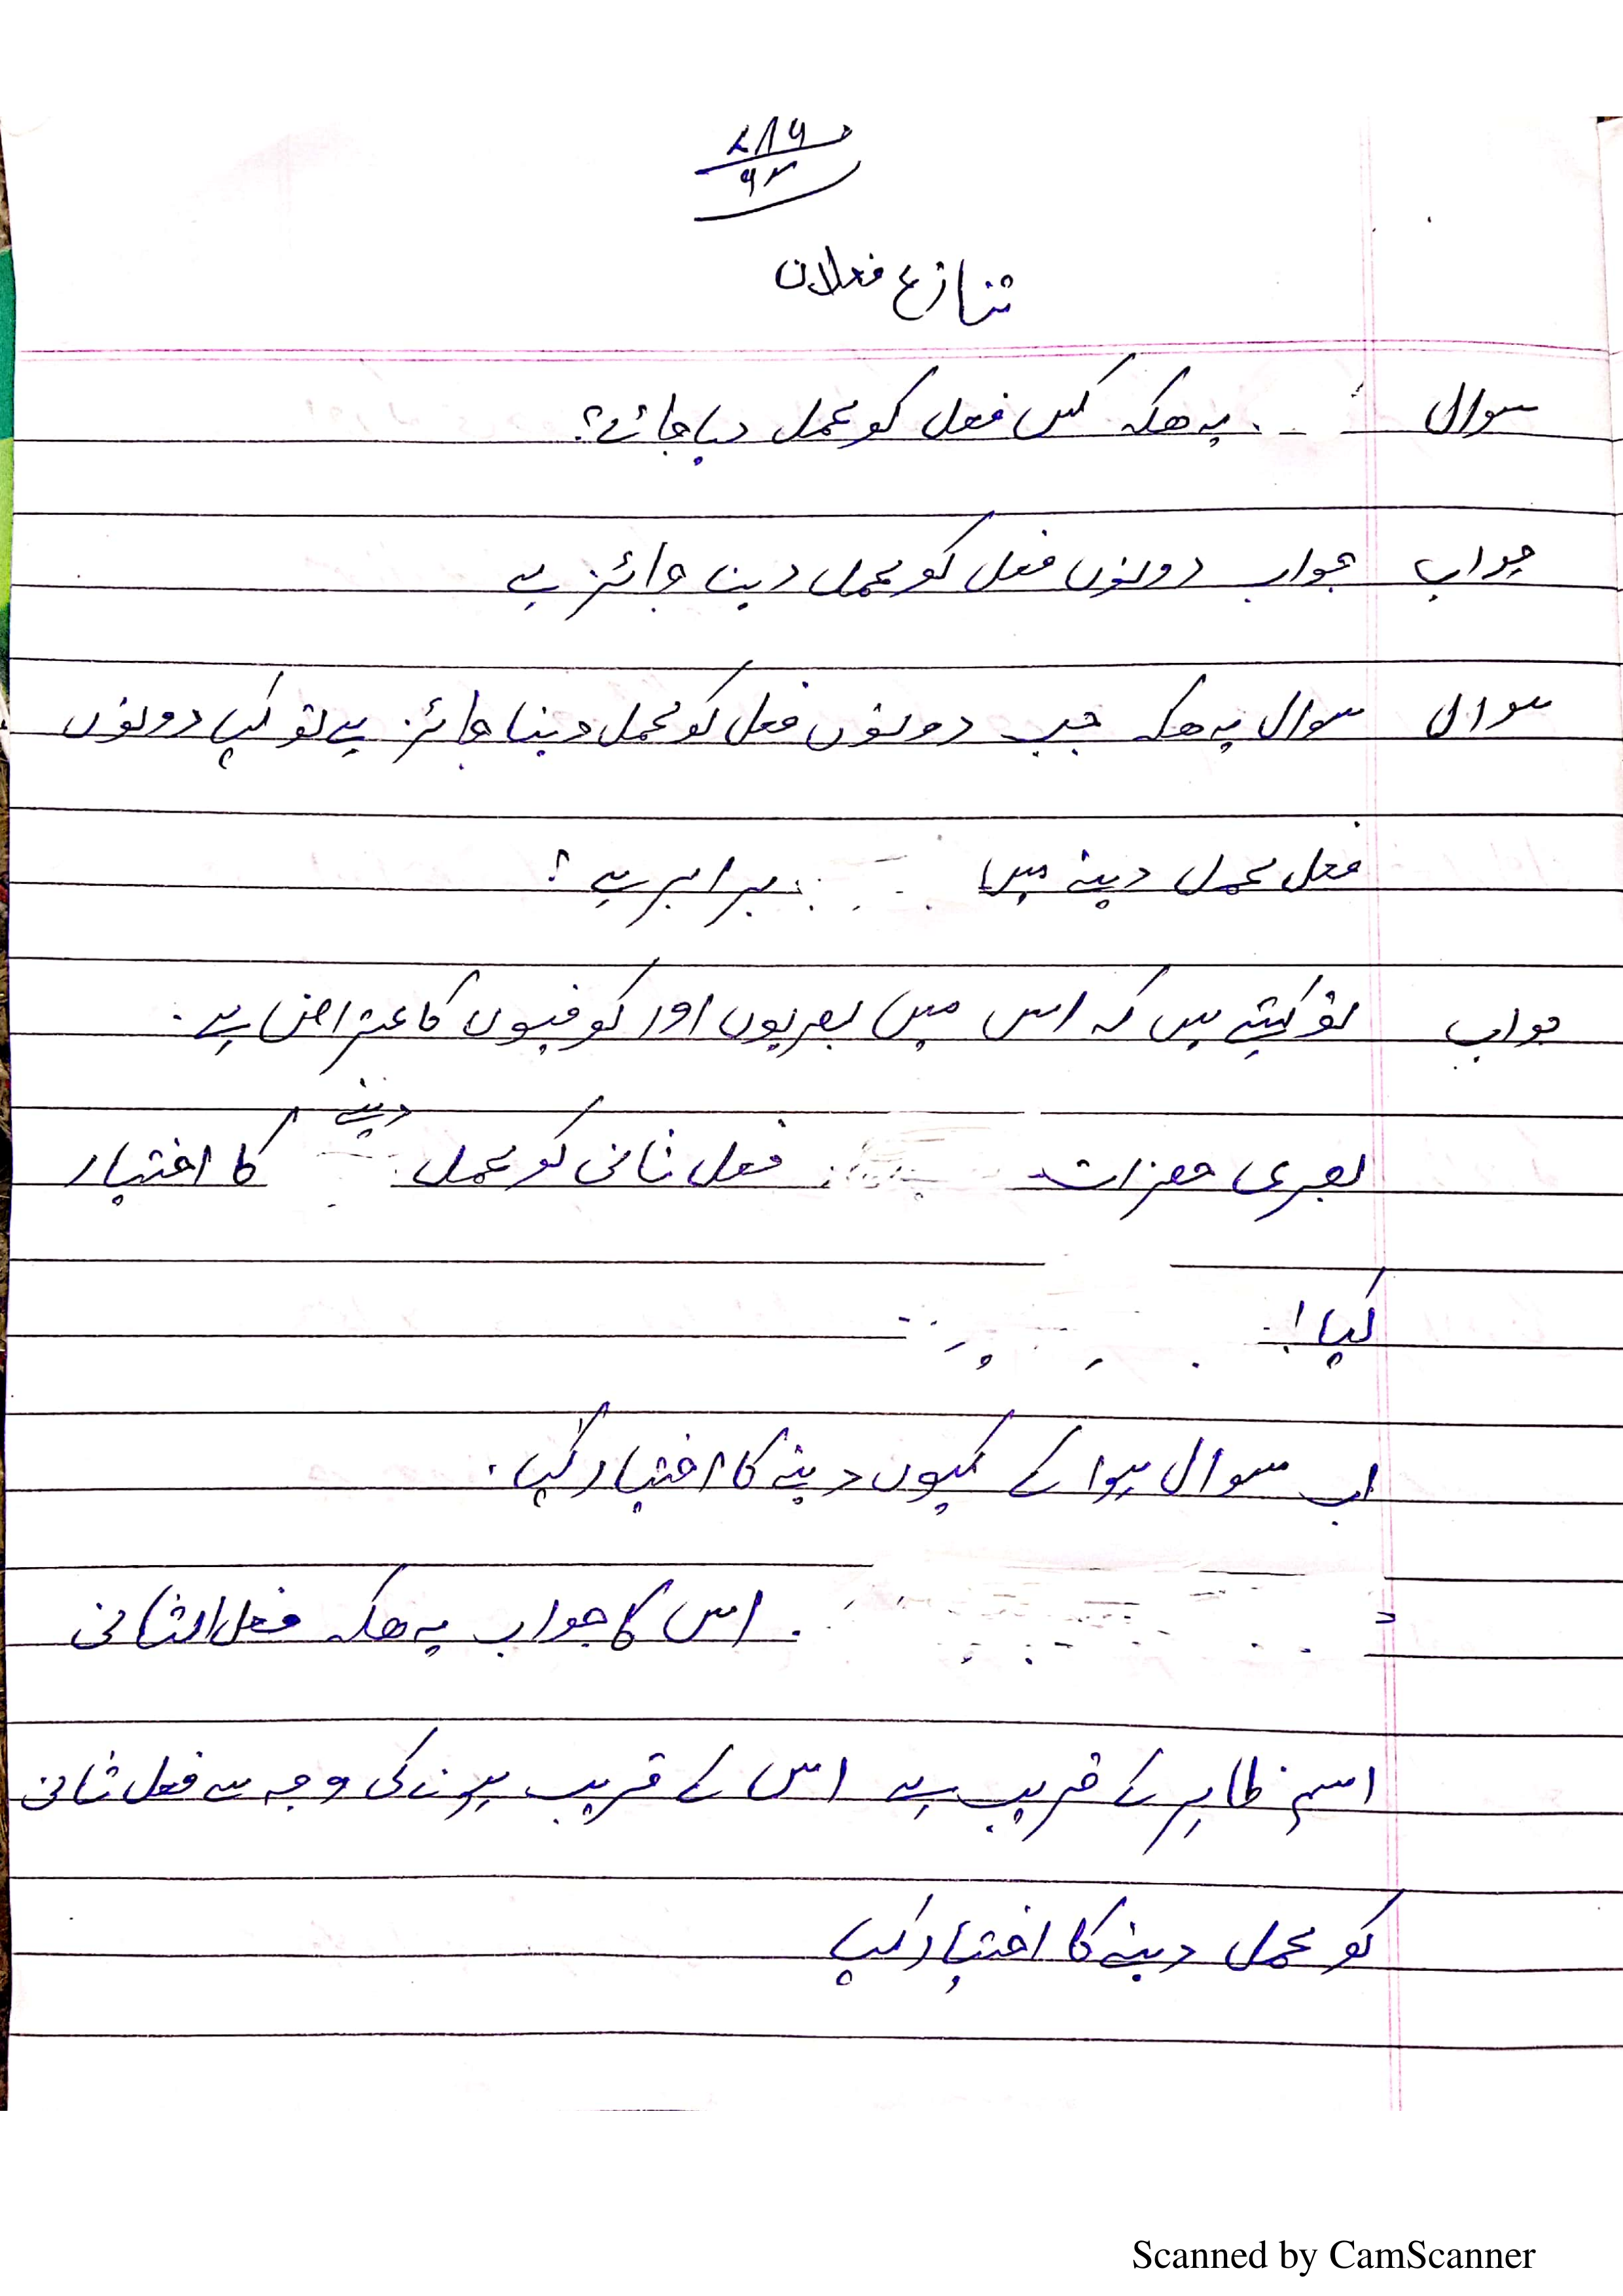 ۷۸۶
۹۲
تنازع فعلان
سوال : یہ ھیکہ کس فعل کو عمل دیا جائے؟
جواب جواب دونوں فعل کو عمل دینا جائز ہے
سوال سوال یہ ھیکہ جب دونوں فعل کو عمل دینا جائز ہے تو کیا دونوں
فعل عمل دینے میں برابر ہے ؟
جواب تو کہتے ہیں کہ اس میں بصریوں اور کوفیوں کا عتراض ہے۔
دینے
بصری حضرات فعل ثانی کو عمل کا اختیار
کیا!
اب سوال ہوا کے کیوں دینے کا اختیار کیا۔
اس کا جواب یہ ھیکہ فعل الثانی
اسم ظاہر کے قریب ہے اس کے قریب ہونے کی وجہ سے فعل ثانی
کو عمل دینے کا اختیار کیا
Scanned by CamScanner